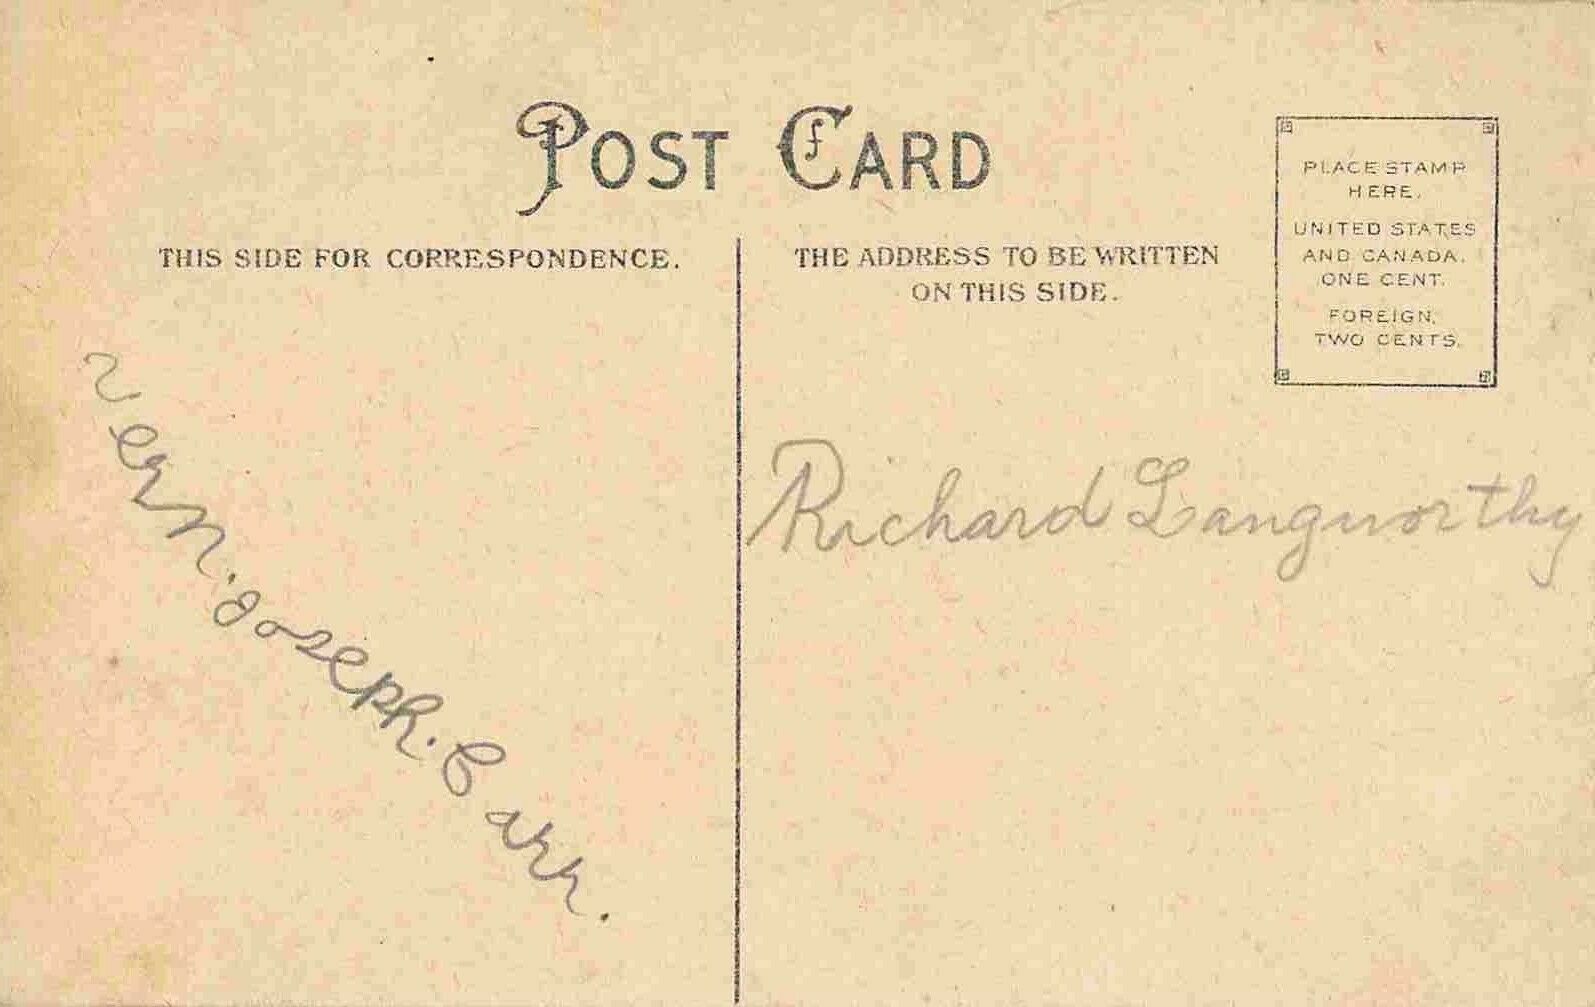 POST CARD
THIS SIDE FOR CORRESPONDENCE.
THE ADDRESS TO BE WRITTEN
ON THIS SIDE.
PLACE STAMP
HERE.
UNITED STATES
AND CANADA.
ONE CENT.
FOREIGN,
TWO CENTS.
Vern. Joseph. Carr.
Richard Langworthy